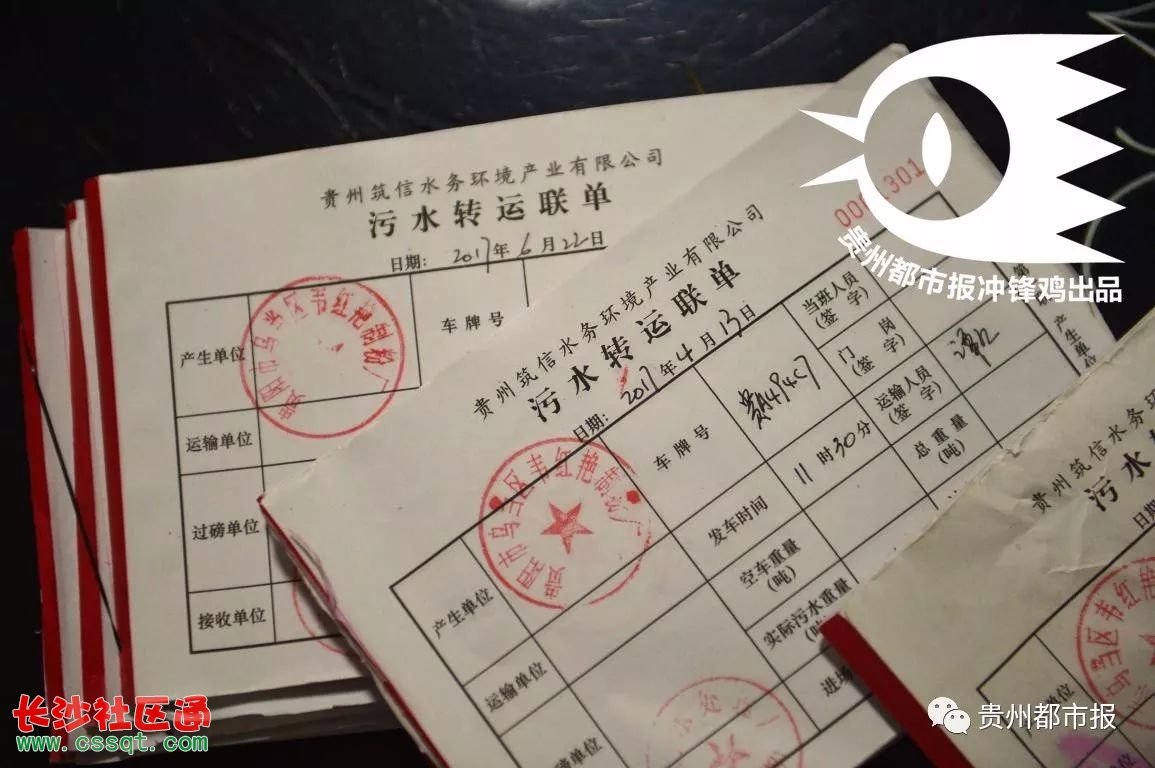 贵州筑信水务环境产业有限公司
污水转运联单
日期: 2017年6月22日
产生单位
车牌号
运输单位
过磅单位
接收单位
贵阳市乌当区韦红艳
301
贵州筑信水务环境产业有限公司
污水转运联单
日期: 2017年4月13日
产生单位
车牌号
当班人员
(签字)
门岗
(签字)
发车时间
11时30分
运输人员
(签字)
运输单位
空车重量
(吨)
总重量
(吨)
实际污水重量
进场
单位
贵阳市乌当区韦红艳
产生单位
贵州筑信水务环境产
污水
日期
单位
乌当区韦红
贵州都市报冲锋鸡出品
长沙社区通
www.cssqt.com
贵州都市报